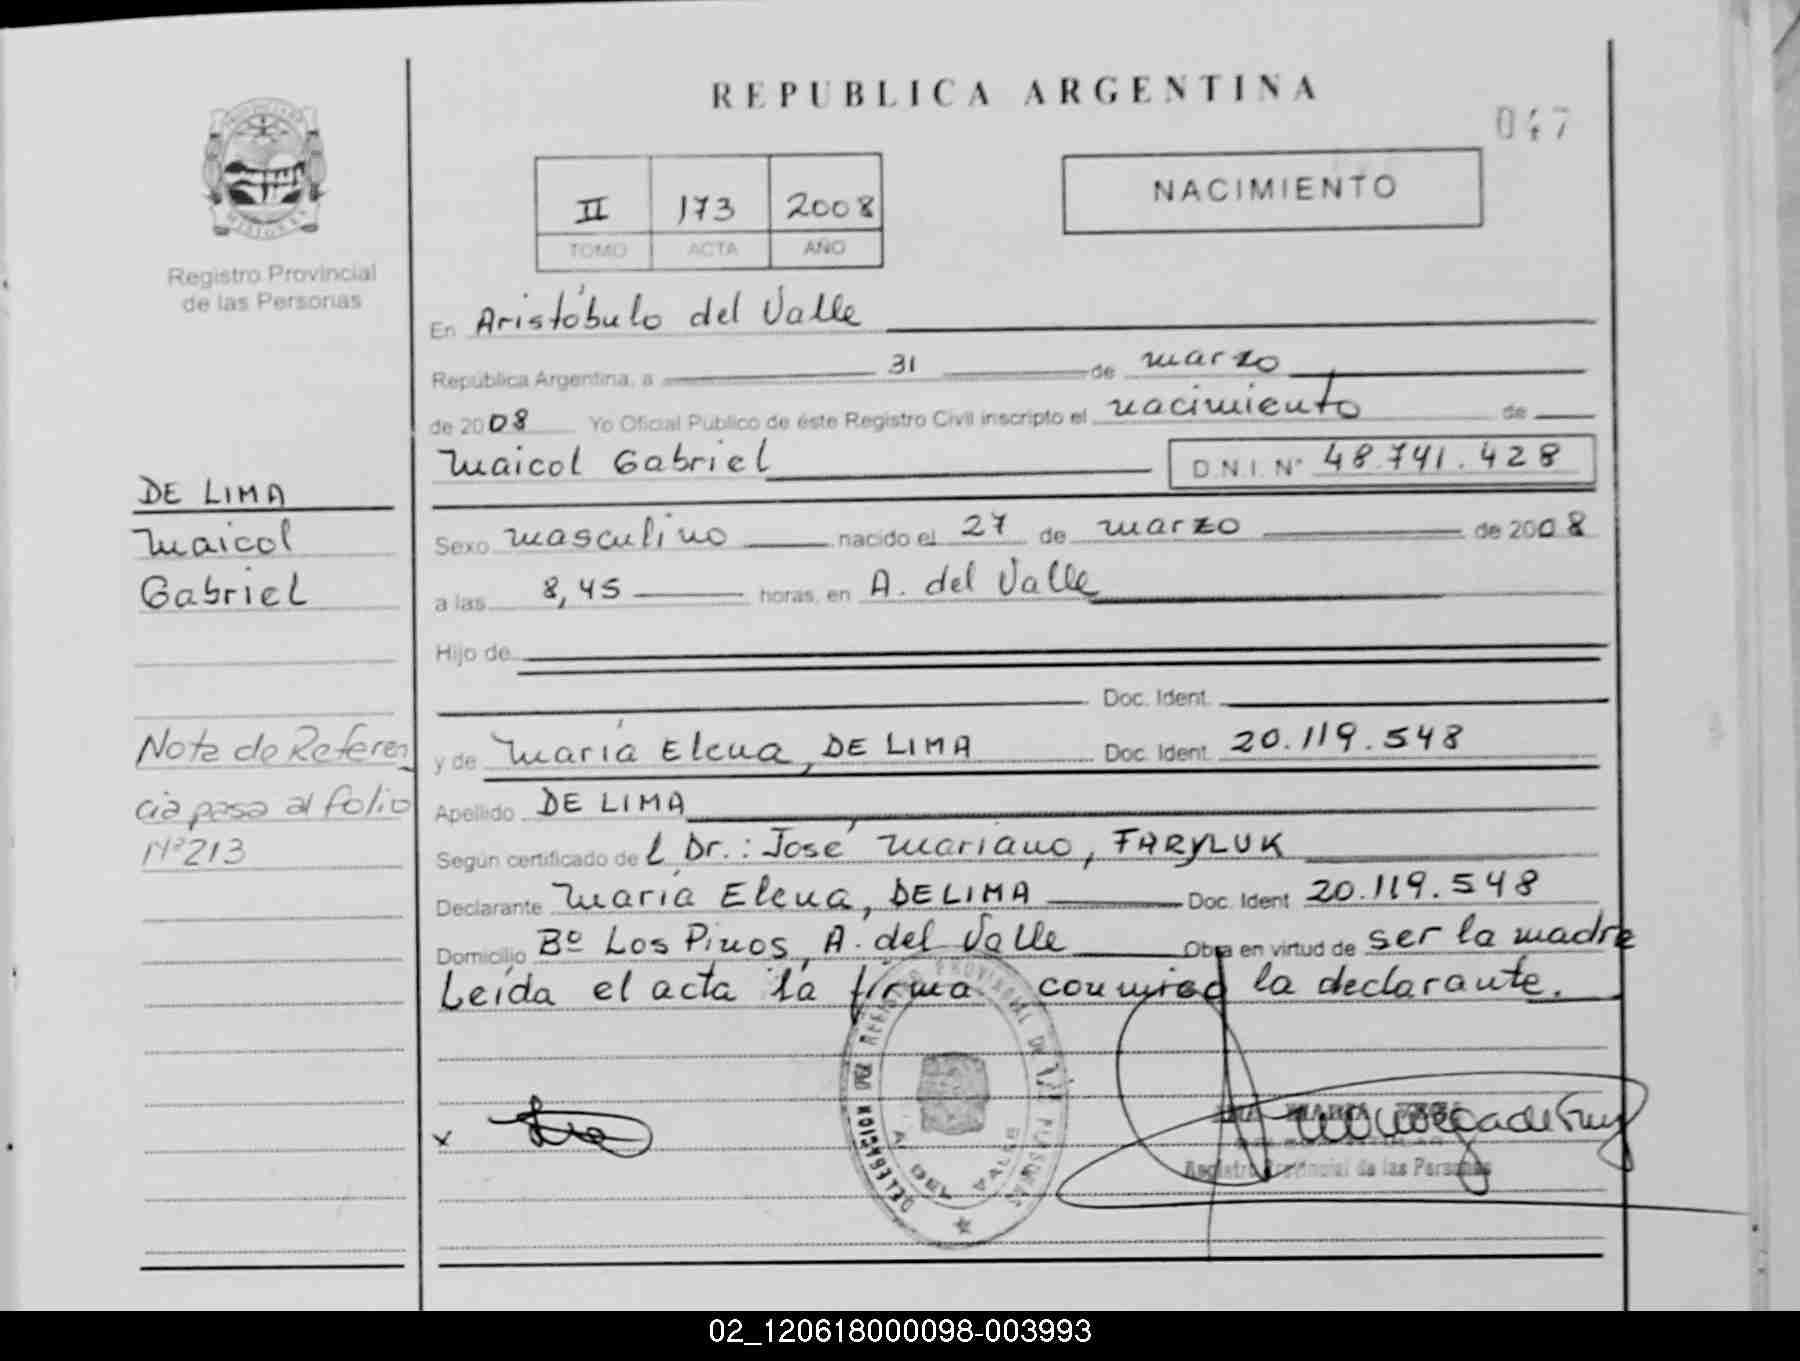 REPUBLICA ARGENTINA
047
PROVINCIA DE MISIONES
Registro Provincial
de las Personas
II 173 2008
TOMO ACTA AÑO
NACIMIENTO
En Aristóbulo del Valle
República Argentina, a 31 de marzo
de 2008 Yo Oficial Público de éste Registro Civil inscripto el nacimiento de
Maicol Gabriel D.N.I. Nº 48.741.428
DE LIMA
Maicol
Gabriel
Sexo masculino nacido el 27 de marzo de 2008
a las 8,45 horas, en A. del Valle
Hijo de
Doc. Ident.
Nota de Referen
cia pasa al folio
Nº 213
y de María Elena, DE LIMA Doc. Ident. 20.119.548
Apellido DE LIMA
Según certificado de l Dr.: José Mariano, FARYLUK
Declarante María Elena, DE LIMA Doc. Ident 20.119.548
Domicilio Bº Los Pinos, A. del Valle Obra en virtud de ser la madre
Leída el acta la firma conmigo la declarante.
REGISTRO PROVINCIAL DE LAS PERSONAS
DELEGACION
VALLE
x
MARIA
Registro Provincial de las Personas
02_120618000098-003993